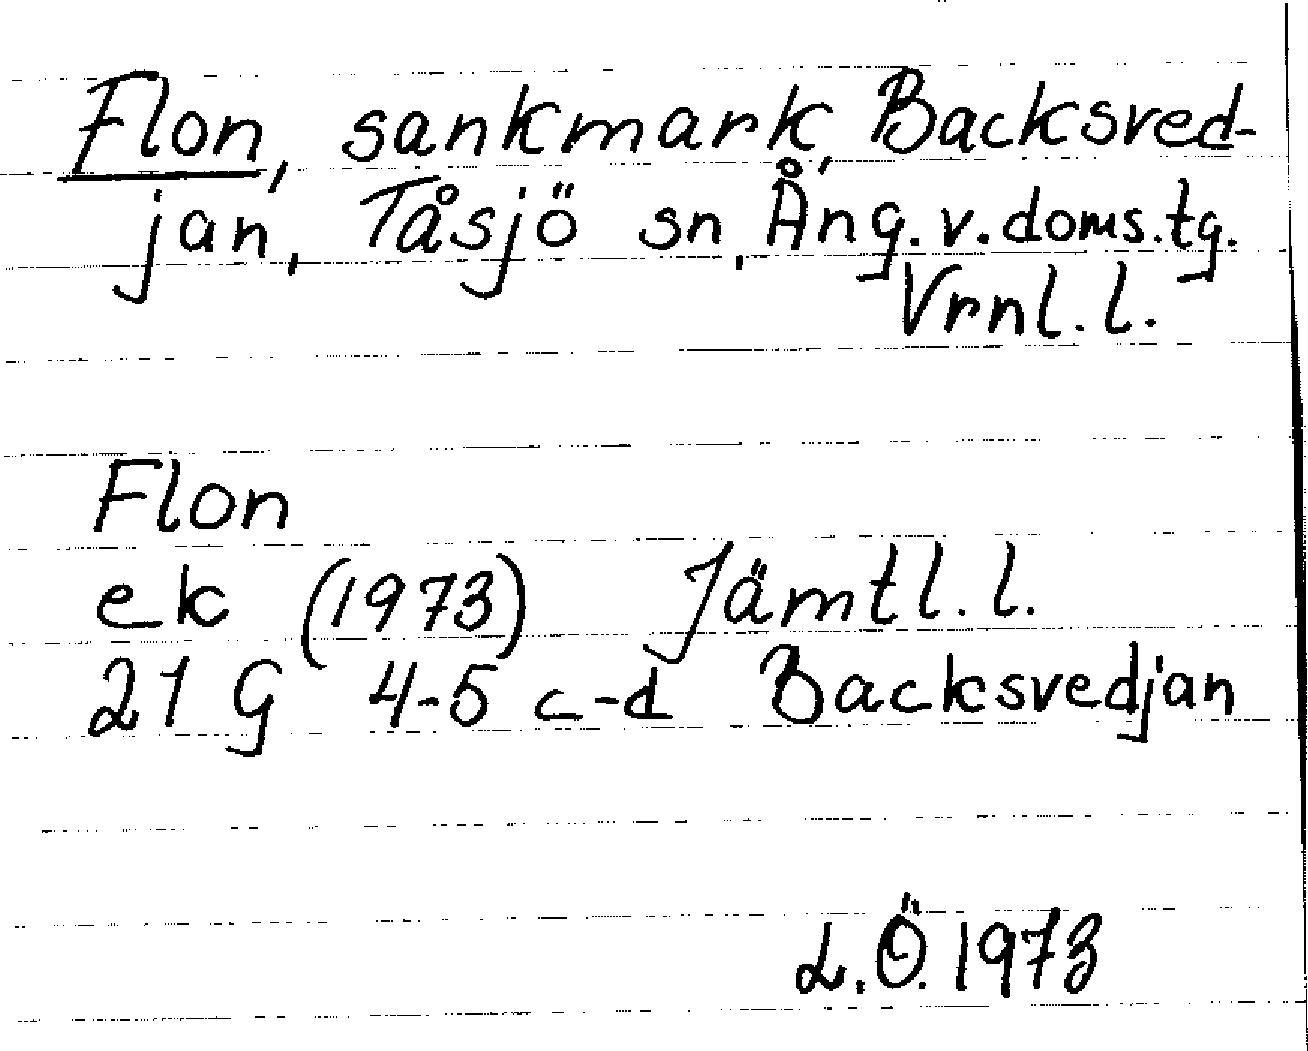 Flon, sankmark, Backsved-
jan, Tåsjö sn, Ång. v. doms.tg.
Vrnl. l.
Flon
ek (1973) Jämtl. l.
21 G 4-5 c-d Backsvedjan
L.Ö. 1973